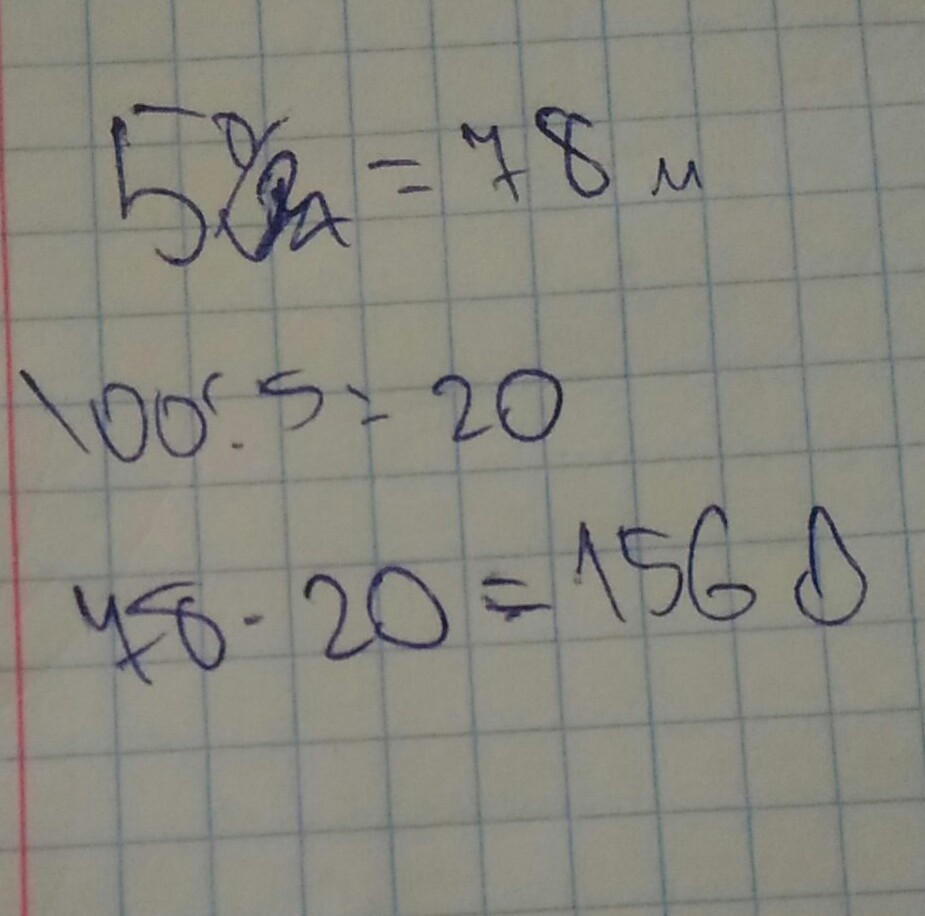 5% = 78 м
100 : 5 = 20
78 · 20 = 1560